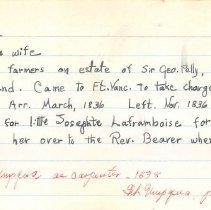 wife
farmers on estate of Sir Geo. Pelly,
nd. Came to Ft. Vanc. to take charge
Arr. March, 1836 Left. Nov. 1836
for little Josephte Laframboise for
her over to the Rev. Beaver when
Umpqua as carpenter - 1838
Ft. Umpqua